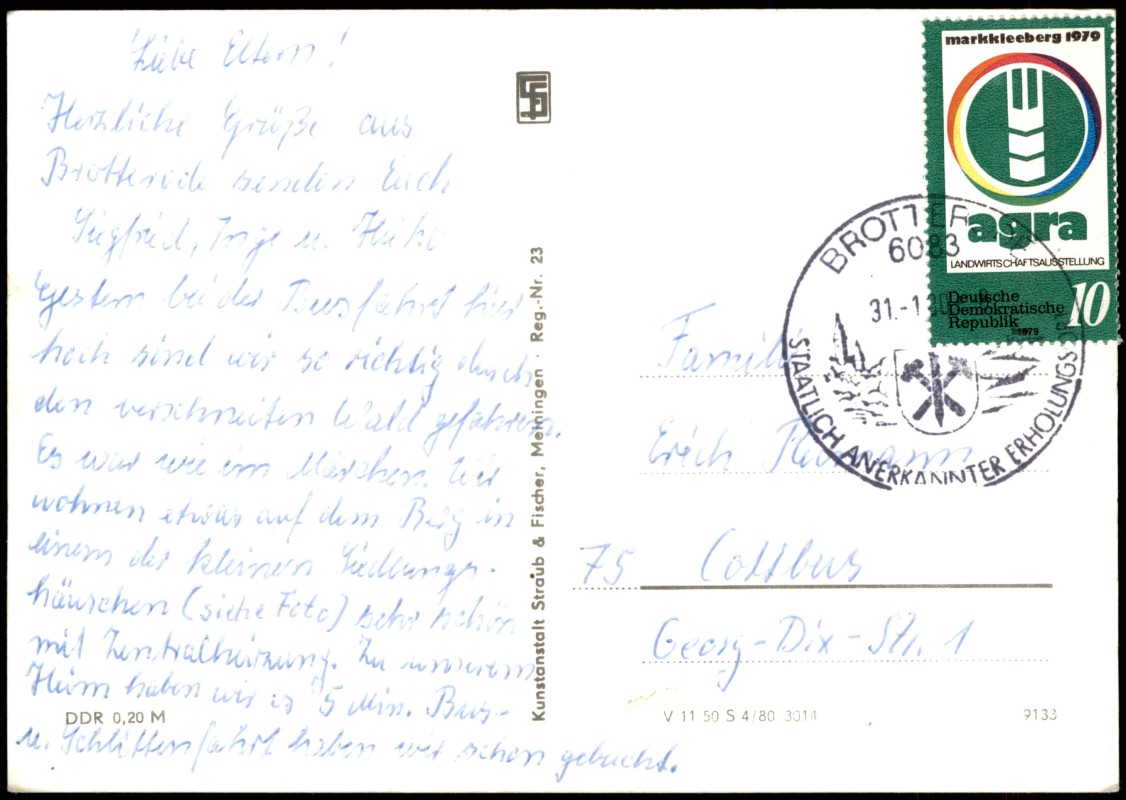 Liebe Eltern!
Herzliche Grüße aus
Brotterode senden Euch
Siegfried, Inge u. Heike
Gestern bei der Busfahrt hier
hoch sind wir so richtig durch
den verschneiten Wald gefahren.
Es war wie im Märchen. Wir
wohnen etwas auf dem Berg in
einem der kleinen Siedlungs-
häuschen (siehe Foto) sehr schön
mit Zentralheizung. Zu unserem
Heim haben wir ca 5 Min. Bus-
u. Schlittenfahrt haben wir schon gebucht.
DDR 0,20 M
Kunstanstalt Straub & Fischer, Meiningen · Reg.-Nr. 23
markkleeberg 1979
agra
LANDWIRTSCHAFTSAUSSTELLUNG
Deutsche
Demokratische
Republik
10
1979
BROTTER
6083
31.-1.80
STAATLICH ANERKANNTER ERHOLUNGSO
Familie
Erich
75 Cottbus
Georg-Dix-Str. 1
V 11 50 S 4/80 3014
9133